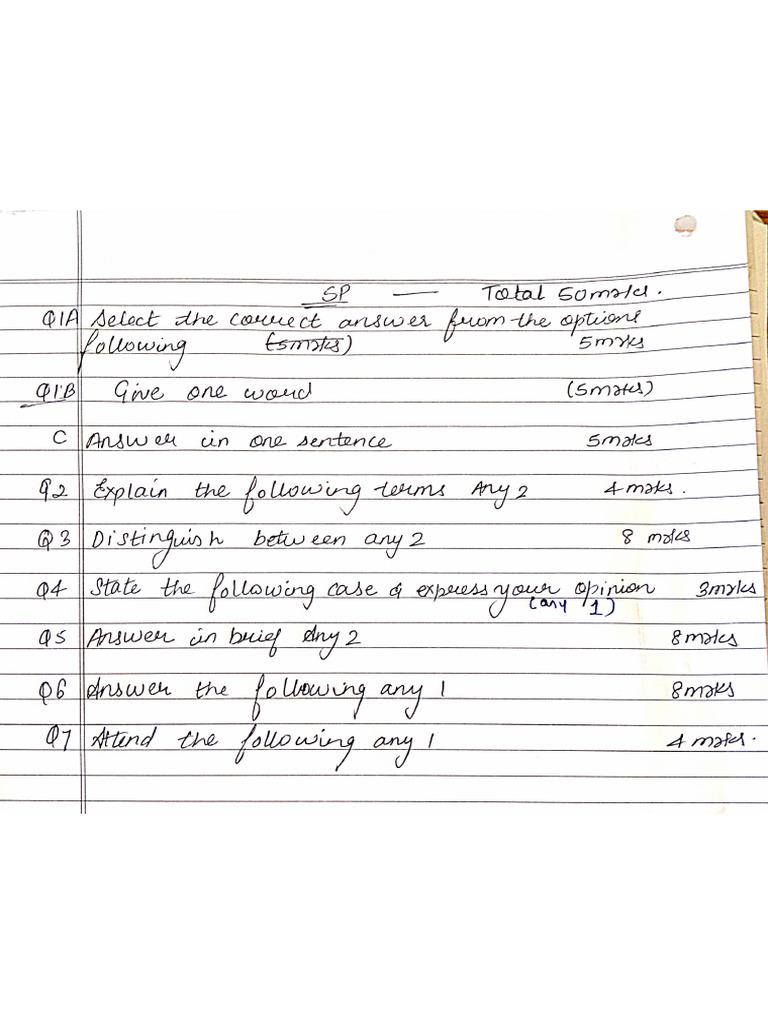 SP — Total 50 marks.
Q1A Select the correct answer from the options
following (5marks) 5marks
Q1.B Give one word (5marks)
C Answer in one sentence 5marks
Q2 Explain the following terms Any 2 4 marks.
Q3 Distinguish between any 2 8 marks
Q4 State the following case & express your opinion 3marks
(any 1)
Q5 Answer in brief Any 2 8marks
Q6 Answer the following any 1 8marks
Q7 Attend the following any 1 4 marks.